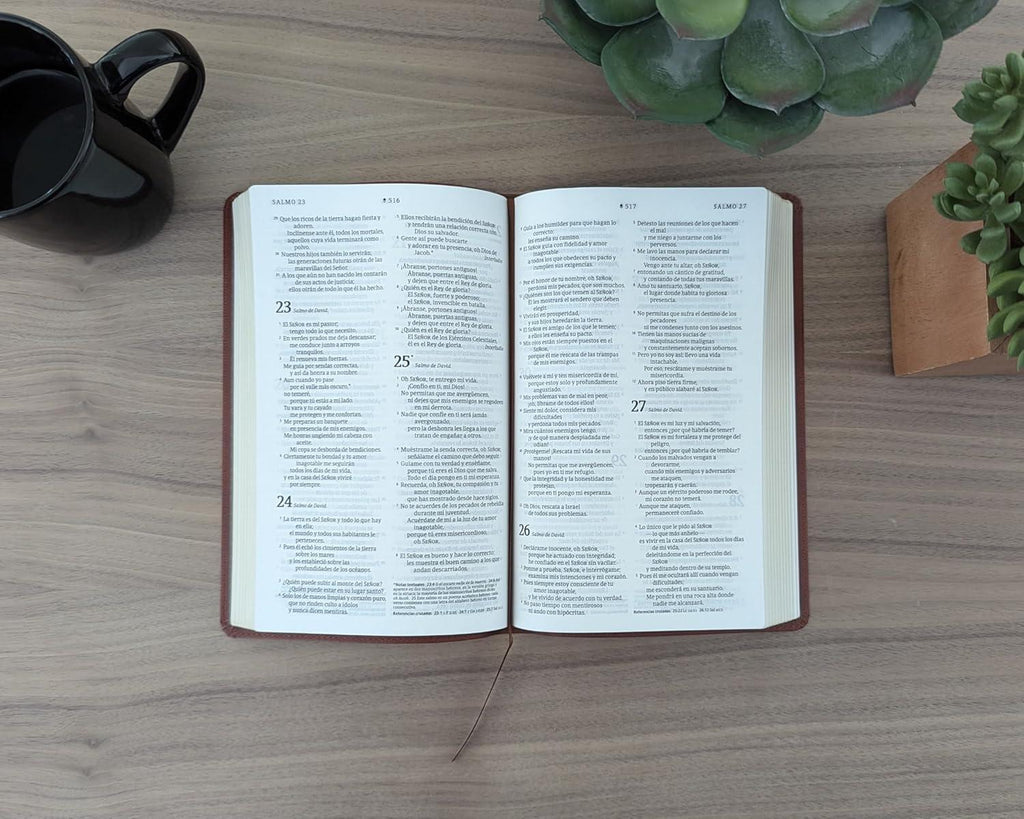 SALMO 23
516
²⁹ Que los ricos de la tierra hagan fiesta y
adoren.
Inclínense ante él, todos los mortales,
aquellos cuya vida terminará como
polvo.
³⁰ Nuestros hijos también lo servirán;
las generaciones futuras oirán de las
maravillas del Señor.
³¹ A los que aún no han nacido les contarán
de sus actos de justicia;
ellos oirán de todo lo que él ha hecho.
23
Salmo de David.
¹ El SEÑOR es mi pastor;
tengo todo lo que necesito.
² En verdes prados me deja descansar;
me conduce junto a arroyos
tranquilos.
³ Él renueva mis fuerzas.
Me guía por sendas correctas,
y así da honra a su nombre.
⁴ Aun cuando yo pase
por el valle más oscuro,*
no temeré,
porque tú estás a mi lado.
Tu vara y tu cayado
me protegen y me confortan.
⁵ Me preparas un banquete
en presencia de mis enemigos.
Me honras ungiendo mi cabeza con
aceite.
Mi copa se desborda de bendiciones.
⁶ Ciertamente tu bondad y tu amor
inagotable me seguirán
todos los días de mi vida,
y en la casa del SEÑOR viviré
por siempre.
24
Salmo de David.
¹ La tierra es del SEÑOR y todo lo que hay
en ella;
el mundo y todos sus habitantes le
pertenecen.
² Pues él echó los cimientos de la tierra
sobre los mares
y los estableció sobre las
profundidades de los océanos.
³ ¿Quién puede subir al monte del SEÑOR?
¿Quién puede estar en su lugar santo?
⁴ Solo los de manos limpias y corazón puro,
que no rinden culto a ídolos
y nunca dicen mentiras.
⁵ Ellos recibirán la bendición del SEÑOR
y tendrán una relación correcta con
Dios su salvador.
⁶ Gente así puede buscarte
y adorar en tu presencia, oh Dios de
Jacob.*
Interludio
⁷ ¡Ábranse, portones antiguos!
Ábranse, puertas antiguas,
y dejen que entre el Rey de gloria.
⁸ ¿Quién es el Rey de gloria?
El SEÑOR, fuerte y poderoso;
el SEÑOR, invencible en batalla.
⁹ ¡Ábranse, portones antiguos!
Ábranse, puertas antiguas,
y dejen que entre el Rey de gloria.
¹⁰ ¿Quién es el Rey de gloria?
El SEÑOR de los Ejércitos Celestiales,
él es el Rey de gloria.
Interludio
25*
Salmo de David.
¹ Oh SEÑOR, te entrego mi vida.
² ¡Confío en ti, mi Dios!
No permitas que me avergüencen,
ni dejes que mis enemigos se regodeen
en mi derrota.
³ Nadie que confíe en ti será jamás
avergonzado,
pero la deshonra les llega a los que
tratan de engañar a otros.
⁴ Muéstrame la senda correcta, oh SEÑOR;
señálame el camino que debo seguir.
⁵ Guíame con tu verdad y enséñame,
porque tú eres el Dios que me salva.
Todo el día pongo en ti mi esperanza.
⁶ Recuerda, oh SEÑOR, tu compasión y tu
amor inagotable,
que has mostrado desde hace siglos.
⁷ No te acuerdes de los pecados de rebeldía
durante mi juventud.
Acuérdate de mí a la luz de tu amor
inagotable,
porque tú eres misericordioso,
oh SEÑOR.
⁸ El SEÑOR es bueno y hace lo correcto;
les muestra el buen camino a los que
andan descarriados.
517
SALMO 27
⁹ Guía a los humildes para que hagan lo
correcto;
les enseña su camino.
¹⁰ El SEÑOR guía con fidelidad y amor
inagotable
a todos los que obedecen su pacto y
cumplen sus exigencias.
¹¹ Por el honor de tu nombre, oh SEÑOR,
perdona mis pecados, que son muchos.
¹² ¿Quiénes son los que temen al SEÑOR?
Él les mostrará el sendero que deben
elegir.
¹³ Vivirán en prosperidad,
y sus hijos heredarán la tierra.
¹⁴ El SEÑOR es amigo de los que le temen;
a ellos les enseña su pacto.
¹⁵ Mis ojos están siempre puestos en el
SEÑOR,
porque él me rescata de las trampas
de mis enemigos.
¹⁶ Vuélvete a mí y ten misericordia de mí,
porque estoy solo y profundamente
angustiado.
¹⁷ Mis problemas van de mal en peor,
¡oh, líbrame de todos ellos!
¹⁸ Siente mi dolor, considera mis
dificultades
y perdona todos mis pecados.
¹⁹ Mira cuántos enemigos tengo,
¡y de qué manera despiadada me
odian!
²⁰ ¡Protégeme! ¡Rescata mi vida de sus
manos!
No permitas que me avergüencen,
pues yo en ti me refugio.
²¹ Que la integridad y la honestidad me
protejan,
porque en ti pongo mi esperanza.
²² Oh Dios, rescata a Israel
de todos sus problemas.
26
Salmo de David.
¹ Declárame inocente, oh SEÑOR,
porque he actuado con integridad;
he confiado en el SEÑOR sin vacilar.
² Ponme a prueba, SEÑOR, e interrógame;
examina mis intenciones y mi corazón.
³ Pues siempre estoy consciente de tu
amor inagotable,
y he vivido de acuerdo con tu verdad.
⁴ No paso tiempo con mentirosos
ni ando con hipócritas.
⁵ Detesto las reuniones de los que hacen
el mal
y me niego a juntarme con los
perversos.
⁶ Me lavo las manos para declarar mi
inocencia.
Vengo ante tu altar, oh SEÑOR,
⁷ entonando un cántico de gratitud,
y contando de todas tus maravillas.
⁸ Amo tu santuario, SEÑOR,
el lugar donde habita tu gloriosa
presencia.
⁹ No permitas que sufra el destino de los
pecadores
ni me condenes junto con los asesinos.
¹⁰ Tienen las manos sucias de
maquinaciones malignas
y constantemente aceptan sobornos.
¹¹ Pero yo no soy así; llevo una vida
intachable.
Por eso, rescátame y muéstrame tu
misericordia.
¹² Ahora piso tierra firme,
y en público alabaré al SEÑOR.
27
Salmo de David.
¹ El SEÑOR es mi luz y mi salvación,
entonces ¿por qué habría de temer?
El SEÑOR es mi fortaleza y me protege del
peligro,
entonces ¿por qué habría de temblar?
² Cuando los malvados vengan a
devorarme,
cuando mis enemigos y adversarios
me ataquen,
tropezarán y caerán.
³ Aunque un ejército poderoso me rodee,
mi corazón no temerá.
Aunque me ataquen,
permaneceré confiado.
⁴ Lo único que le pido al SEÑOR
—lo que más anhelo—
es vivir en la casa del SEÑOR todos los días
de mi vida,
deleitándome en la perfección del
SEÑOR
y meditando dentro de su templo.
⁵ Pues él me ocultará allí cuando vengan
dificultades;
me esconderá en su santuario.
Me pondrá en una roca alta donde
nadie me alcanzará.